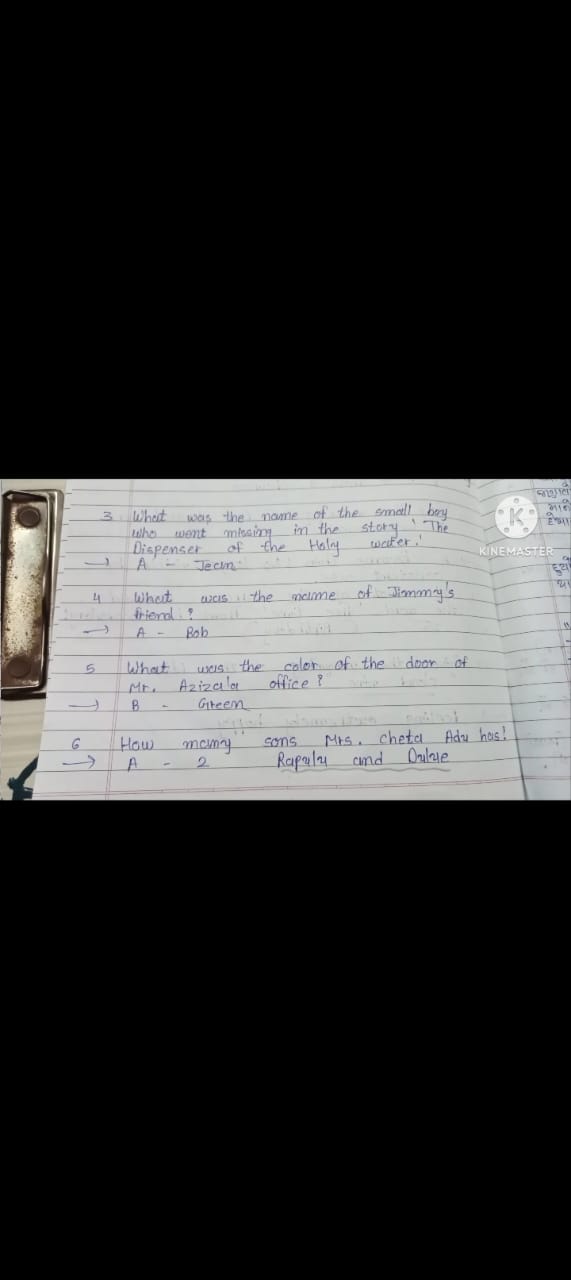 3 What was the name of the small boy
who went missing in the story ' The
Dispenser of the Holy water.'
→ A - Jean
4 What was the name of Jimmy's
friend ?
→ A - Bob
5 What was the color of the door of
Mr. Aziza'a office ?
→ B - Green
6 How many sons Mrs. cheta Adu has!
→ A - 2 and
KINEMASTER